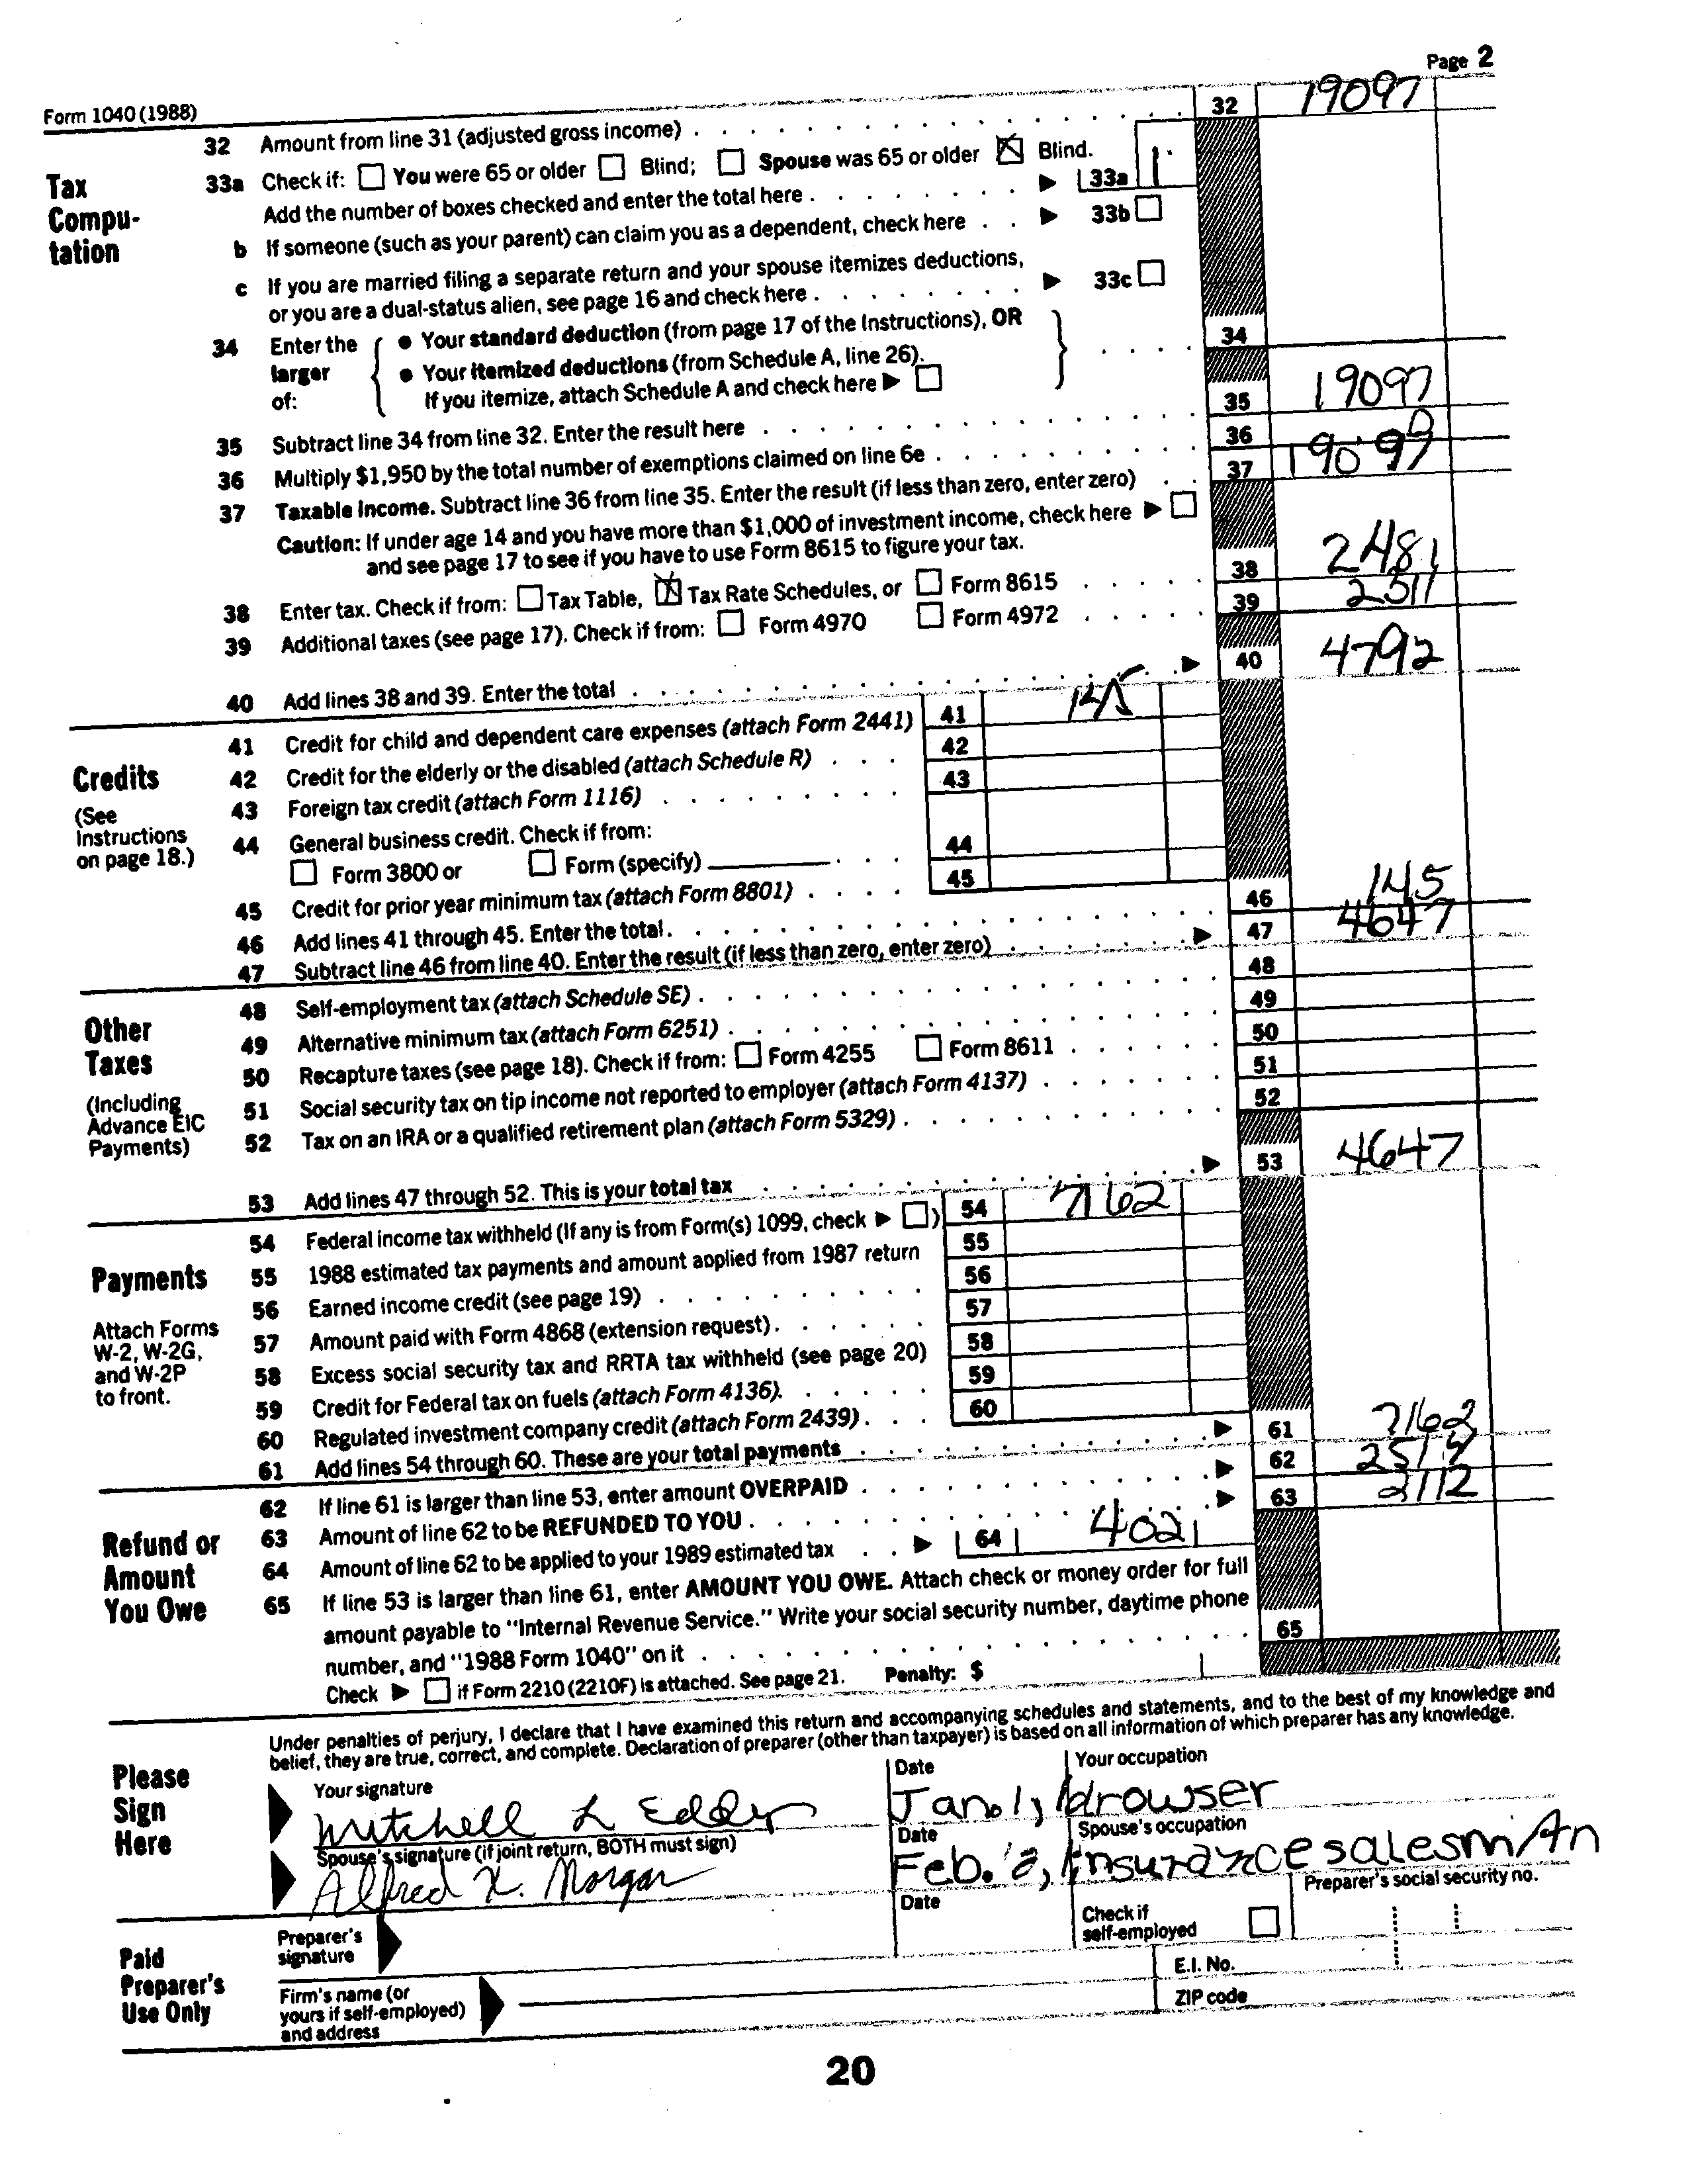 Page 2
Form 1040 (1988)
32 Amount from line 31 (adjusted gross income) 32 19097
Tax Computation
33a Check if: You were 65 or older Blind; Spouse was 65 or older Blind.
Add the number of boxes checked and enter the total here 33a 1
b If someone (such as your parent) can claim you as a dependent, check here 33b
c If you are married filing a separate return and your spouse itemizes deductions,
or you are a dual-status alien, see page 16 and check here 33c
34 Enter the larger of:
• Your standard deduction (from page 17 of the Instructions), OR
• Your itemized deductions (from Schedule A, line 26).
If you itemize, attach Schedule A and check here 34
35 Subtract line 34 from line 32. Enter the result here 35 19097
36 Multiply $1,950 by the total number of exemptions claimed on line 6e 36 0
37 Taxable income. Subtract line 36 from line 35. Enter the result (if less than zero, enter zero) 37 19097
Caution: If under age 14 and you have more than $1,000 of investment income, check here
and see page 17 to see if you have to use Form 8615 to figure your tax.
38 Enter tax. Check if from: Tax Table, Tax Rate Schedules, or Form 8615 38 2481
39 Additional taxes (see page 17). Check if from: Form 4970 Form 4972 39 2311
40 Add lines 38 and 39. Enter the total 40 4792
Credits
(See Instructions on page 18.)
41 Credit for child and dependent care expenses (attach Form 2441) 41 145
42 Credit for the elderly or the disabled (attach Schedule R) 42
43 Foreign tax credit (attach Form 1116) 43
44 General business credit. Check if from:
Form 3800 or Form (specify) 44
45 Credit for prior year minimum tax (attach Form 8801) 45
46 Add lines 41 through 45. Enter the total 46 145
47 Subtract line 46 from line 40. Enter the result (if less than zero, enter zero) 47 4647
Other Taxes
(Including Advance EIC Payments)
48 Self-employment tax (attach Schedule SE) 48
49 Alternative minimum tax (attach Form 6251) 49
50 Recapture taxes (see page 18). Check if from: Form 4255 Form 8611 50
51 Social security tax on tip income not reported to employer (attach Form 4137) 51
52 Tax on an IRA or a qualified retirement plan (attach Form 5329) 52
53 Add lines 47 through 52. This is your total tax 53 4647
Payments
Attach Forms W-2, W-2G, and W-2P to front.
54 Federal income tax withheld (If any is from Form(s) 1099, check ) 54 7162
55 1988 estimated tax payments and amount applied from 1987 return 55
56 Earned income credit (see page 19) 56
57 Amount paid with Form 4868 (extension request) 57
58 Excess social security tax and RRTA tax withheld (see page 20) 58
59 Credit for Federal tax on fuels (attach Form 4136). 59
60 Regulated investment company credit (attach Form 2439) 60
61 Add lines 54 through 60. These are your total payments 61 7162
Refund or Amount You Owe
62 If line 61 is larger than line 53, enter amount OVERPAID 62
63 Amount of line 62 to be REFUNDED TO YOU 63 2112
64 Amount of line 62 to be applied to your 1989 estimated tax 64 402
65 If line 53 is larger than line 61, enter AMOUNT YOU OWE. Attach check or money order for full
amount payable to "Internal Revenue Service." Write your social security number, daytime phone
number, and "1988 Form 1040" on it 65
Check if Form 2210 (2210F) is attached. See page 21. Penalty: $
Please Sign Here
Under penalties of perjury, I declare that I have examined this return and accompanying schedules and statements, and to the best of my knowledge and
belief, they are true, correct, and complete. Declaration of preparer (other than taxpayer) is based on all information of which preparer has any knowledge.
Your signature Date Your occupation
Mitchell L Edder Jan. 1, drowser
Spouse's signature (if joint return, BOTH must sign) Date Spouse's occupation
Alfred X. Morgan Feb. 2, insurance salesmAn
Paid Preparer's Use Only
Preparer's signature Date Check if self-employed Preparer's social security no.
Firm's name (or yours if self-employed) and address E.I. No.
ZIP code
20